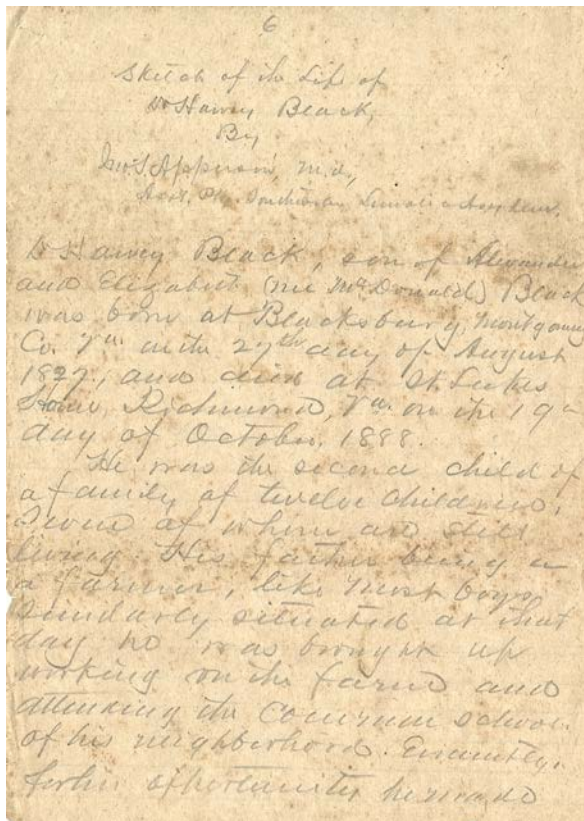 6
Sketch of the Life of
Dr Harvey Black,
By
Jno. S. Apperson, M.D.,
Asst. Phy. Southwestern Lunatic Asylum.
Dr Harvey Black, son of Alexander
and Elizabeth (nee McDonald) Black
was born at Blacksburg, Montgomery
Co. Va. on the 27th day of August
1827, and died at St. Lukes
Home, Richmond, Va. on the 19th
day of October, 1888.
He was the second child of
a family of twelve children,
of whom are still
living. His father being a
a farmer, like most boys
similarly situated at that
day he was brought up
working on the farm and
attending the Common school
of his neighborhood.
opportunities he made